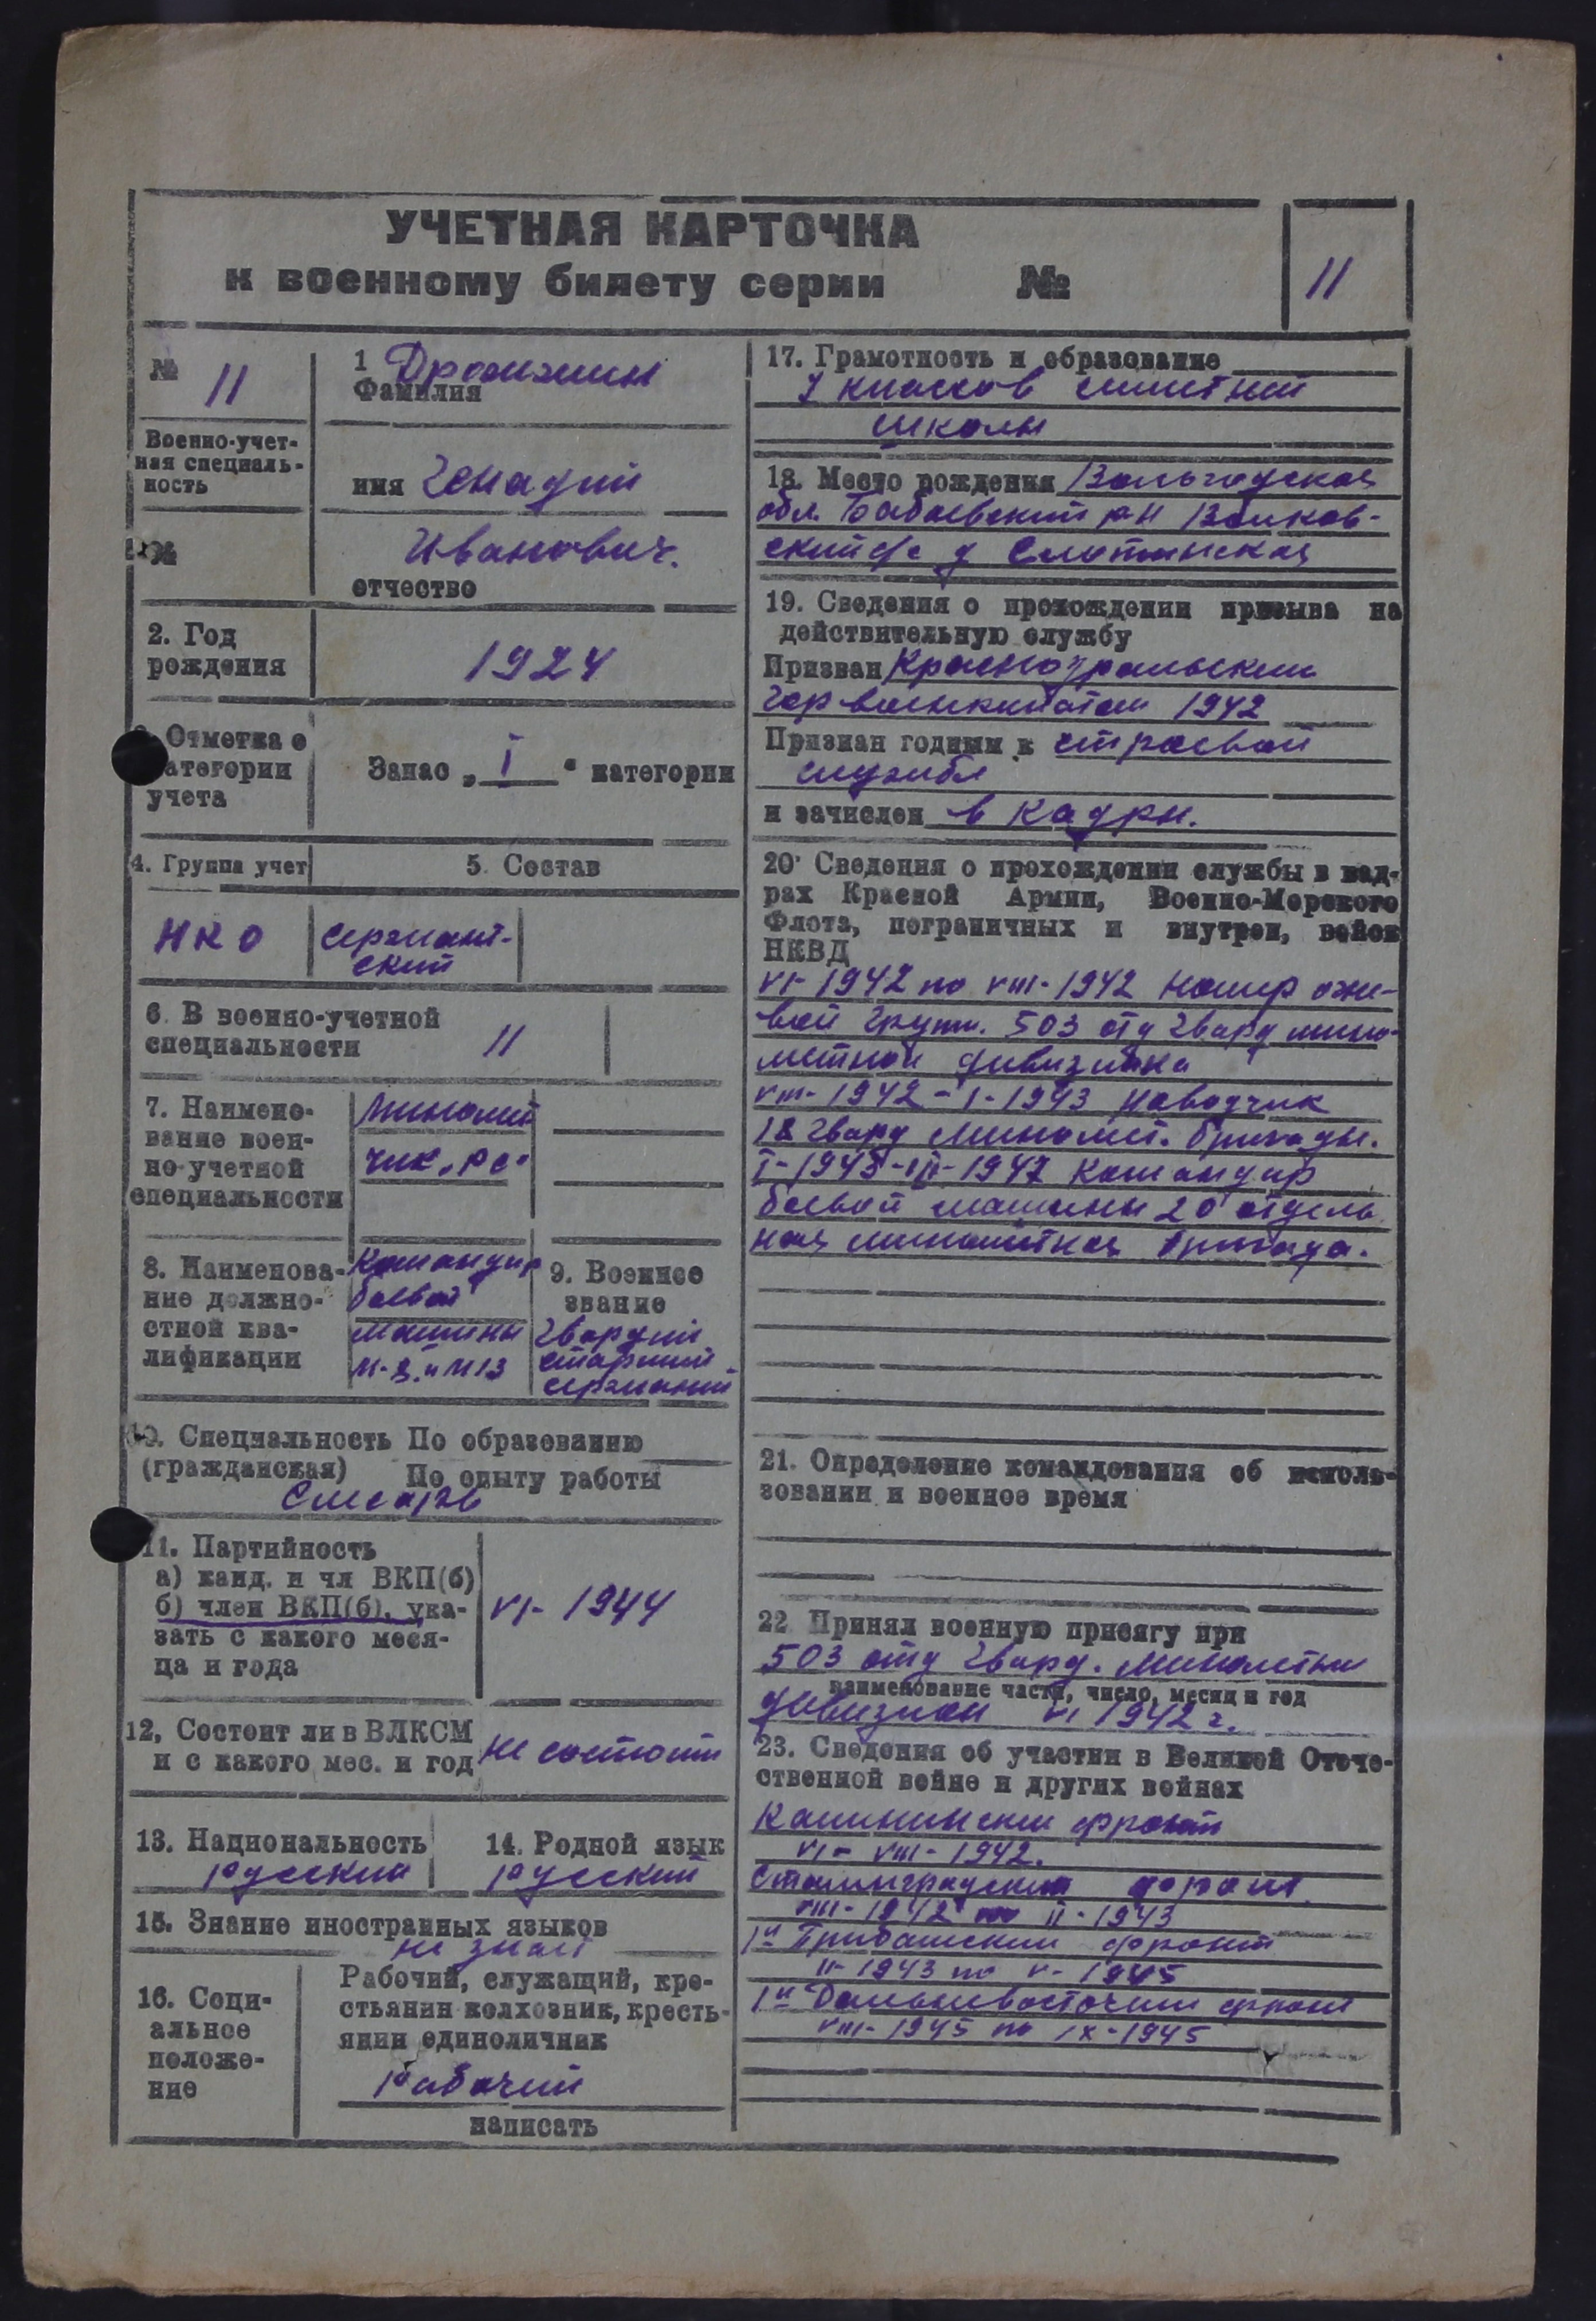 УЧЕТНАЯ КАРТОЧКА
к военному билету серии №
11
№ 11
1 Дрожжин
Фамилия
Военно-учет-
ная специаль-
ность
имя Генадий
№
Иванович.
отчество
2. Год
рождения
1924
Отметка о
категории
учета
Запас „ I " категории
4. Группа учет
5. Состав
НКО
сержант-
ский
6. В военно-учетной
специальности
11
7. Наимено-
вание воен-
но-учетной
специальности
Миномет
чик „РС"
8. Наименова-
ние должно-
стной ква-
лификации
Командир
боевой
машины
М-8 и М13
9. Военное
звание
Гвардии
старший
сержант
10. Специальность По образованию
(гражданская) По опыту работы
Слесарь
11. Партийность
а) канд. и чл ВКП(б)
б) член ВКП(б), ука-
зать с какого меся-
ца и года
VI- 1944
12, Состоит ли в ВЛКСМ
и с какого мес. и год
не состоит
13. Национальность
русский
14. Родной язык
русский
15. Знание иностранных языков
не знает
16. Соци-
альное
положе-
ние
Рабочий, служащий, кре-
стьянин колхозник, кресть-
янин единоличник
рабочий
написать
17. Грамотность и образование
7 классов
школы
18. Место рождения Вольгодская
обл. Бабаевский р-н Волков-
ский с/с д
19. Сведения о прохождении призыва на
действительную службу
Призван Красноуральским
гор военкоматом 1942
Признан годным к строевой
службе
и зачислен в кадры.
20. Сведения о прохождении службы в кад-
рах Красной Армии, Военно-Морского
Флота, пограничных и внутрен, войск
НКВД
VI-1942 по VIII-1942 номер огне-
вой групп. 503 отд гвард мино-
метной дивизиона
VIII-1942-I-1943 наводчик
18 гвард миномет. бригады.
I-1943-III-1947 Командир
боевой машины 20 отдель
ная минометная бригада.
21. Определение командования об исполь-
зовании и военное время
22 Принял военную присягу при
503 отд гвард. минометный
наименование части, число, месяц и год
дивизион VI 1942 г.
23. Сведения об участии в Великой Отече-
ственной войне и других войнах
Калининский фронт
VI- VIII-1942.
Сталинградский фронт
VIII-1942 по II-1943
1й Прибалский фронт
II-1943 по V-1945
1й Дальневосточный фронт
VIII-1945 по IX-1945